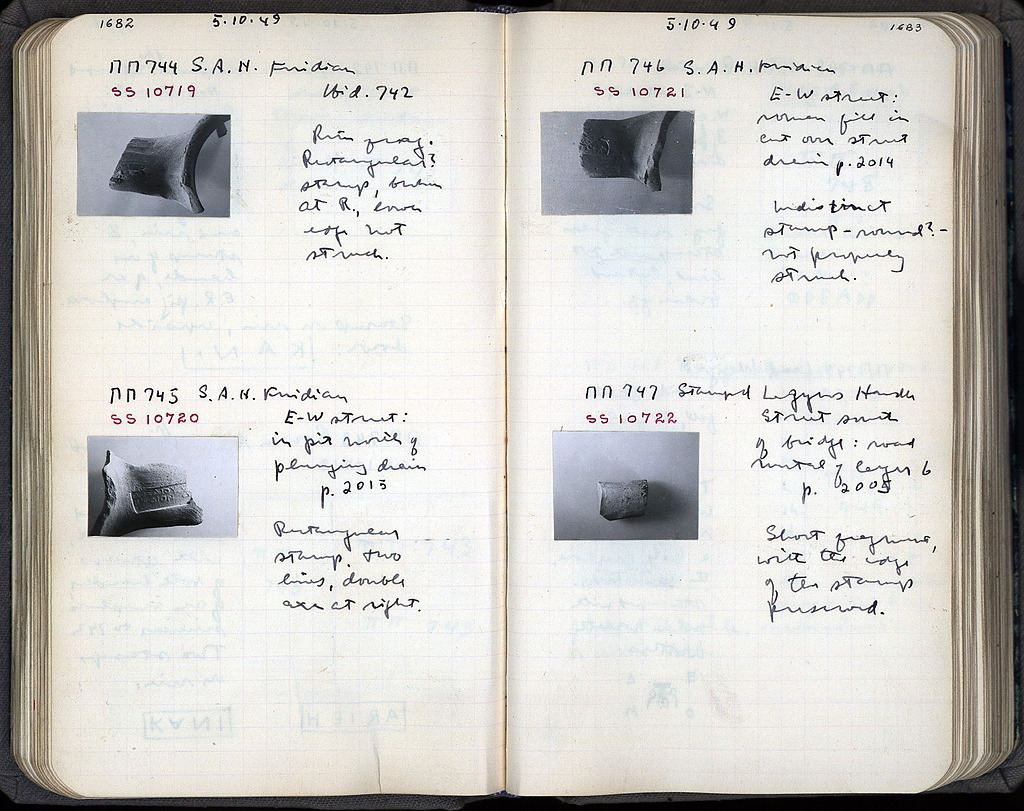 1682
5·10·49
ΠΠ 744 S.A.H. Knidian
SS 10719
Ibid. 742
Rim frag.
Rectangular?
stamp, broken
at R., lower
edge not
struck.
ΠΠ 745 S.A.H. Knidian
SS 10720
E-W street:
in pit north of
plunging drain
p. 2015
Rectangular
stamp, two
lines, double
axe at right.
5·10·49
1683
ΠΠ 746 S.A.H. Knidian
SS 10721
E-W street:
roman fill in
cut over street
drain p. 2014
Indistinct
stamp - round? -
not properly
struck.
ΠΠ 747 Stamped Lagynos Handle
SS 10722
Street south
of bridge: road
metal of layer 6
p. 2005
Short fragment,
with the edge
of the stamp
preserved.